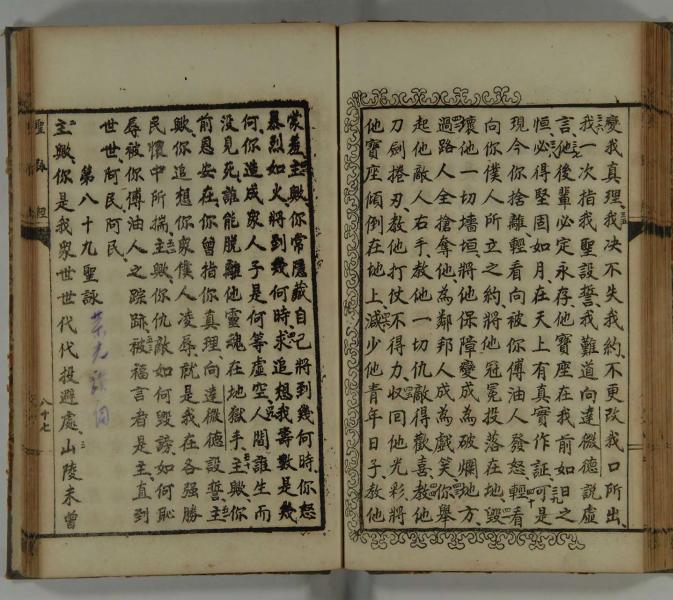 變我真理、我決不失我約、不更改我口所出、
我一次指我聖設誓、我難道向達微德說虛
言、他後輩必定永存、他寶座在我前如日之
恒、必得堅固如月、在天上有真實作証、可是
現今你捨離、輕看向被你傅油人發怒、輕看
向你僕人所立之約、將他冠冕投落在地、毀
壞他一切墻垣、將他保障變成為破爛地方、
過路人全搶奪他、為鄰邦人成為戲笑、你舉
起他敵人右手、教他一切仇敵得歡喜、教他
刀劍捲刃、教他打仗不得力、收回他光彩、將
他寶座傾倒在地上、減少他青年日子、教他
蒙羞、主歟、你常隱藏自己將到幾何時、你怒
暴烈如火將到幾何時、求追想我壽數是幾
何、你造成衆人子是何等虛空、人間誰生而
沒見死、誰能脫離他靈魂在地獄手、主歟、你
前恩安在、你曾指你真理、向達微德設誓、主
歟、你追想你衆僕人凌辱、就是我在各强勝
民懷中所揣、主歟、你仇敵如何毀謗、如何恥
辱被你傅油人之踪跡、被福言者是主、直到
世世、阿民、阿民、
第八十九聖詠
主歟、你是我衆世世代代投避處、山陵未曾
聖詠經
八十七